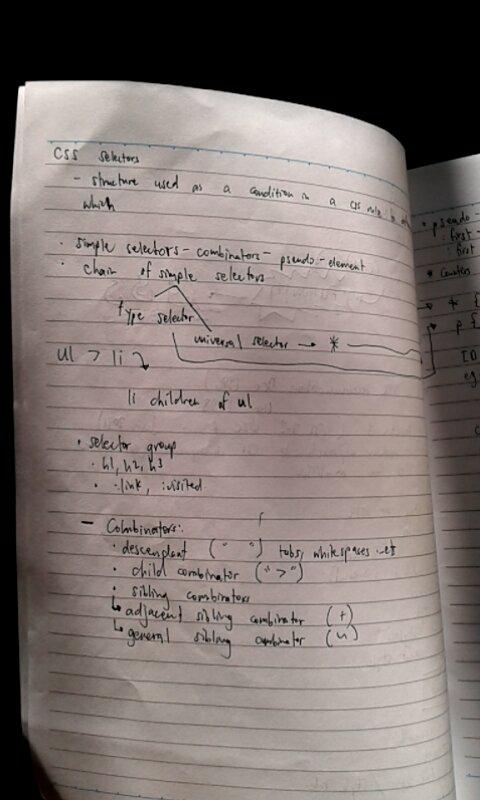 CSS selectors
- structure used as a condition in a CSS rule
which
• simple selectors - combinators - pseudo-element
• chain of simple selectors
type selector
universal selector → *
ul > li
li children of ul
• selector group
• h1, h2, h3
• :link, :visited
- Combinators:
• descendant (" ") tabs, whitespaces
• child combinator (">")
• sibling combinators
↳ adjacent sibling combinator (+)
↳ general sibling combinator (~)
• pseudo-
: first-
: first
* counters
→ * {
p {
ID
eg